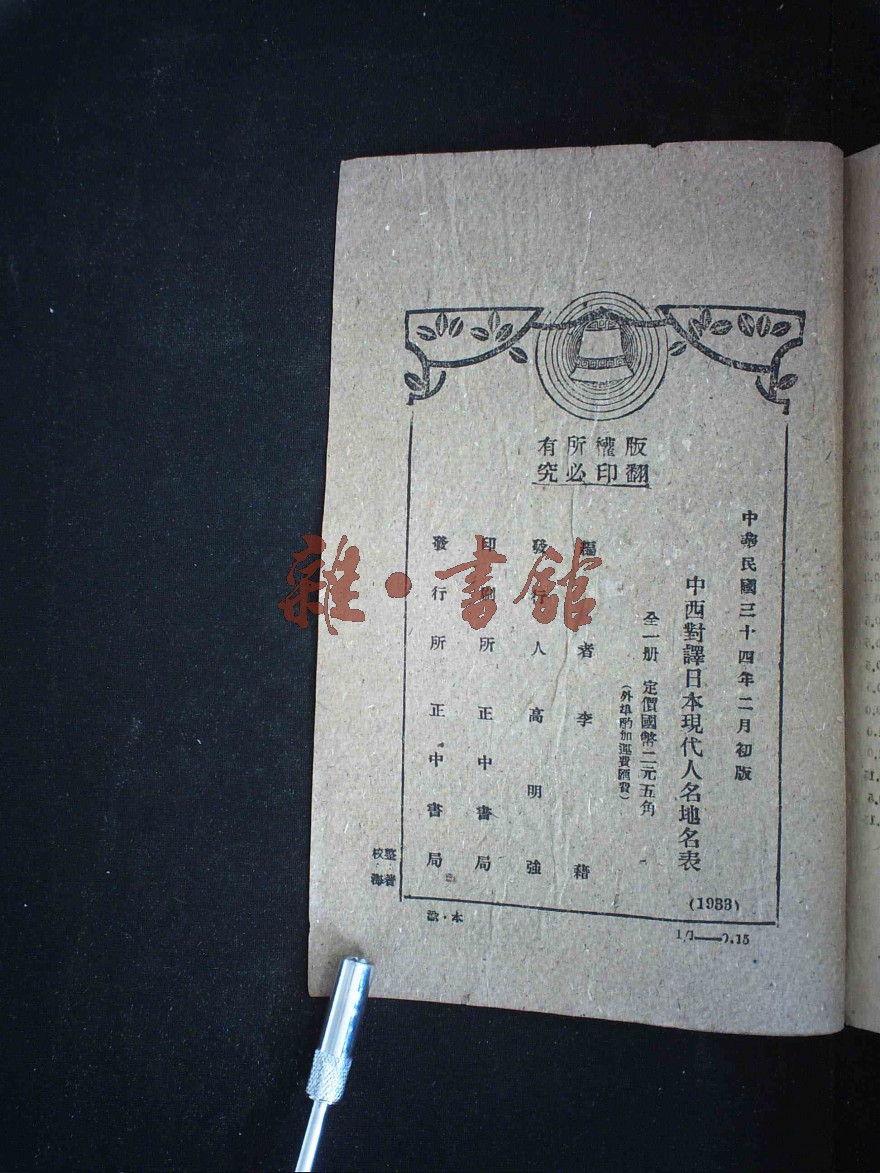 版權所有
翻印必究
中華民國三十四年二月初版
中西對譯日本現代人名地名表
全一册 定價國幣二元五角
(外埠酌加運費匯費)
編者 李 籍
發行人 高明強
印刷所 正中書局
發行所 正中書局
(1933)
雜·書館